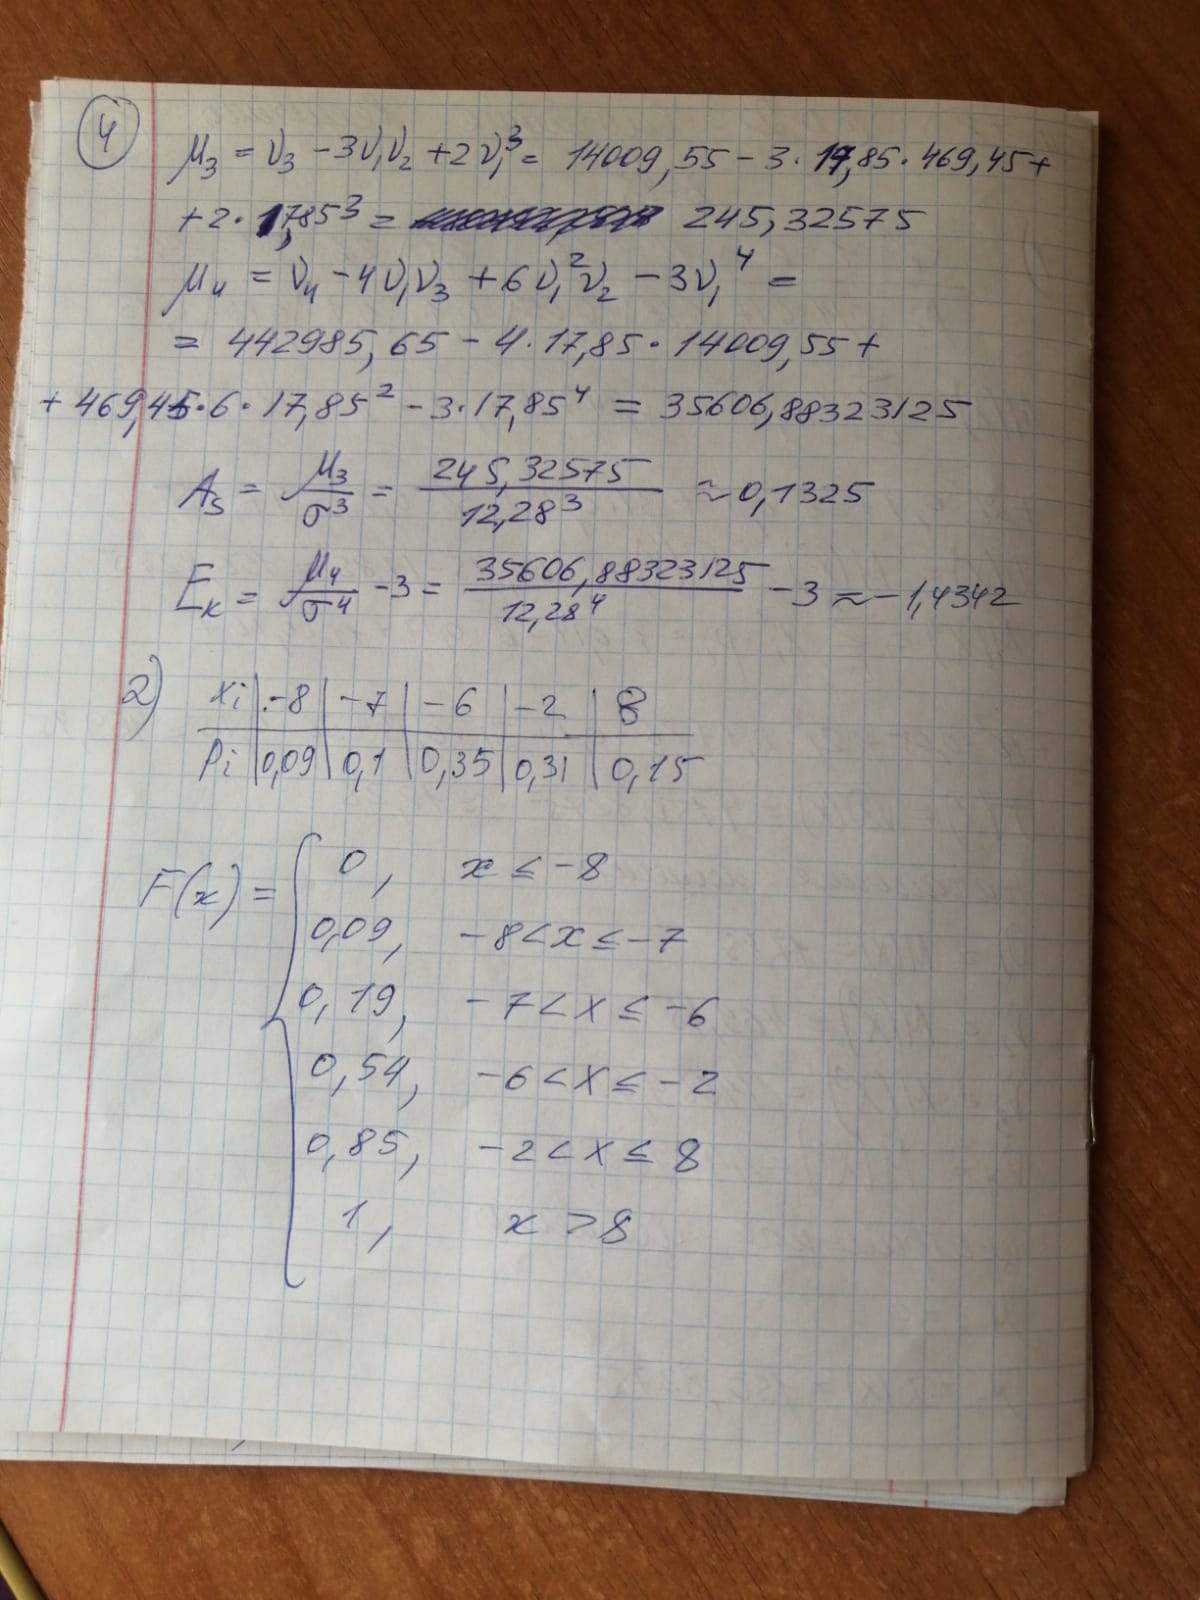 4
μ₃ = ν₃ - 3ν₁ν₂ + 2ν₁³ = 14009,55 - 3 · 17,85 · 469,45 +
+ 2 · 17,85³ = 245,32575
μ₄ = ν₄ - 4ν₁ν₃ + 6ν₁²ν₂ - 3ν₁⁴ =
= 442985,65 - 4 · 17,85 · 14009,55 +
+ 469,45 · 6 · 17,85² - 3 · 17,85⁴ = 35606,88323125
As = μ₃/σ³ = 245,32575/12,28³ ≈ 0,1325
Eк = μ₄/σ⁴ - 3 = 35606,88323125/12,28⁴ - 3 ≈ -1,4342
2) xi | -8 | -7 | -6 | -2 | 8
pi | 0,09 | 0,1 | 0,35 | 0,31 | 0,15
F(x) = { 0, x ≤ -8
0,09, -8 < x ≤ -7
0,19, -7 < x ≤ -6
0,54, -6 < x ≤ -2
0,85, -2 < x ≤ 8
1, x > 8